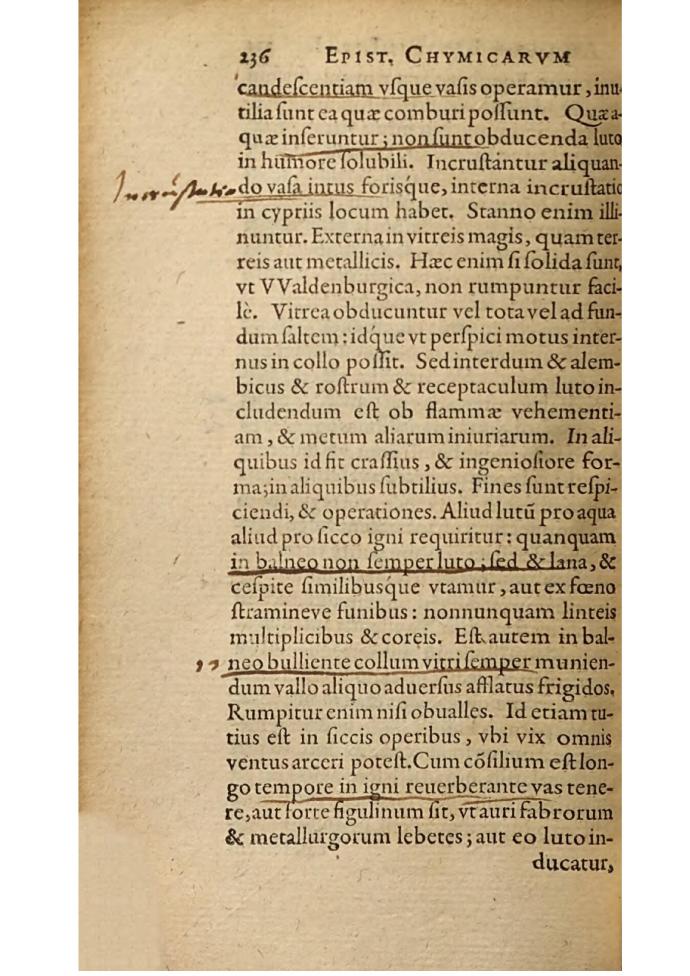 236 EPIST. CHYMICARVM
candeſcentiam vſque vaſis operamur, inu-
tilia ſunt ea quæ comburi poſſunt. Quæ a-
quæ inſeruntur; non ſunt obducenda luto
in humore ſolubili. Incruſtantur aliquan-
Incruſtatio
do vaſa intus foriſque, interna incruſtatio
in cypriis locum habet. Stanno enim illi-
nuntur. Externa in vitreis magis, quam ter-
reis aut metallicis. Hæc enim ſi ſolida ſunt,
vt VValdenburgica, non rumpuntur faci-
lè. Vitrea obducuntur vel tota vel ad fun-
dum ſaltem: idq́ue vt perſpici motus inter-
nus in collo poſſit. Sed interdum & alem-
bicus & roſtrum & receptaculum luto in-
cludendum eſt ob flammæ vehementi-
am, & metum aliarum iniuriarum. In ali-
quibus id fit craſſius, & ingenioſiore for-
ma; in aliquibus ſubtilius. Fines ſunt reſpi-
ciendi, & operationes. Aliud lutū pro aqua
aliud pro ſicco igni requiritur: quanquam
in balneo non ſemper luto; ſed & lana, &
ceſpite ſimilibuſque vtamur, aut ex fœno
ſtramineve funibus: nonnunquam linteis
multiplicibus & coreis. Eſt autem in bal-
neo bulliente collum vitri ſemper munien-
dum vallo aliquo aduerſus afflatus frigidos.
Rumpitur enim niſi obualles. Id etiam tu-
tius eſt in ſiccis operibus, vbi vix omnis
ventus arceri poteſt. Cum cōſilium eſt lon-
go tempore in igni reuerberante vas tene-
re, aut forte figulinum ſit, vt auri fabrorum
& metallurgorum lebetes; aut eo luto in-
ducatur,